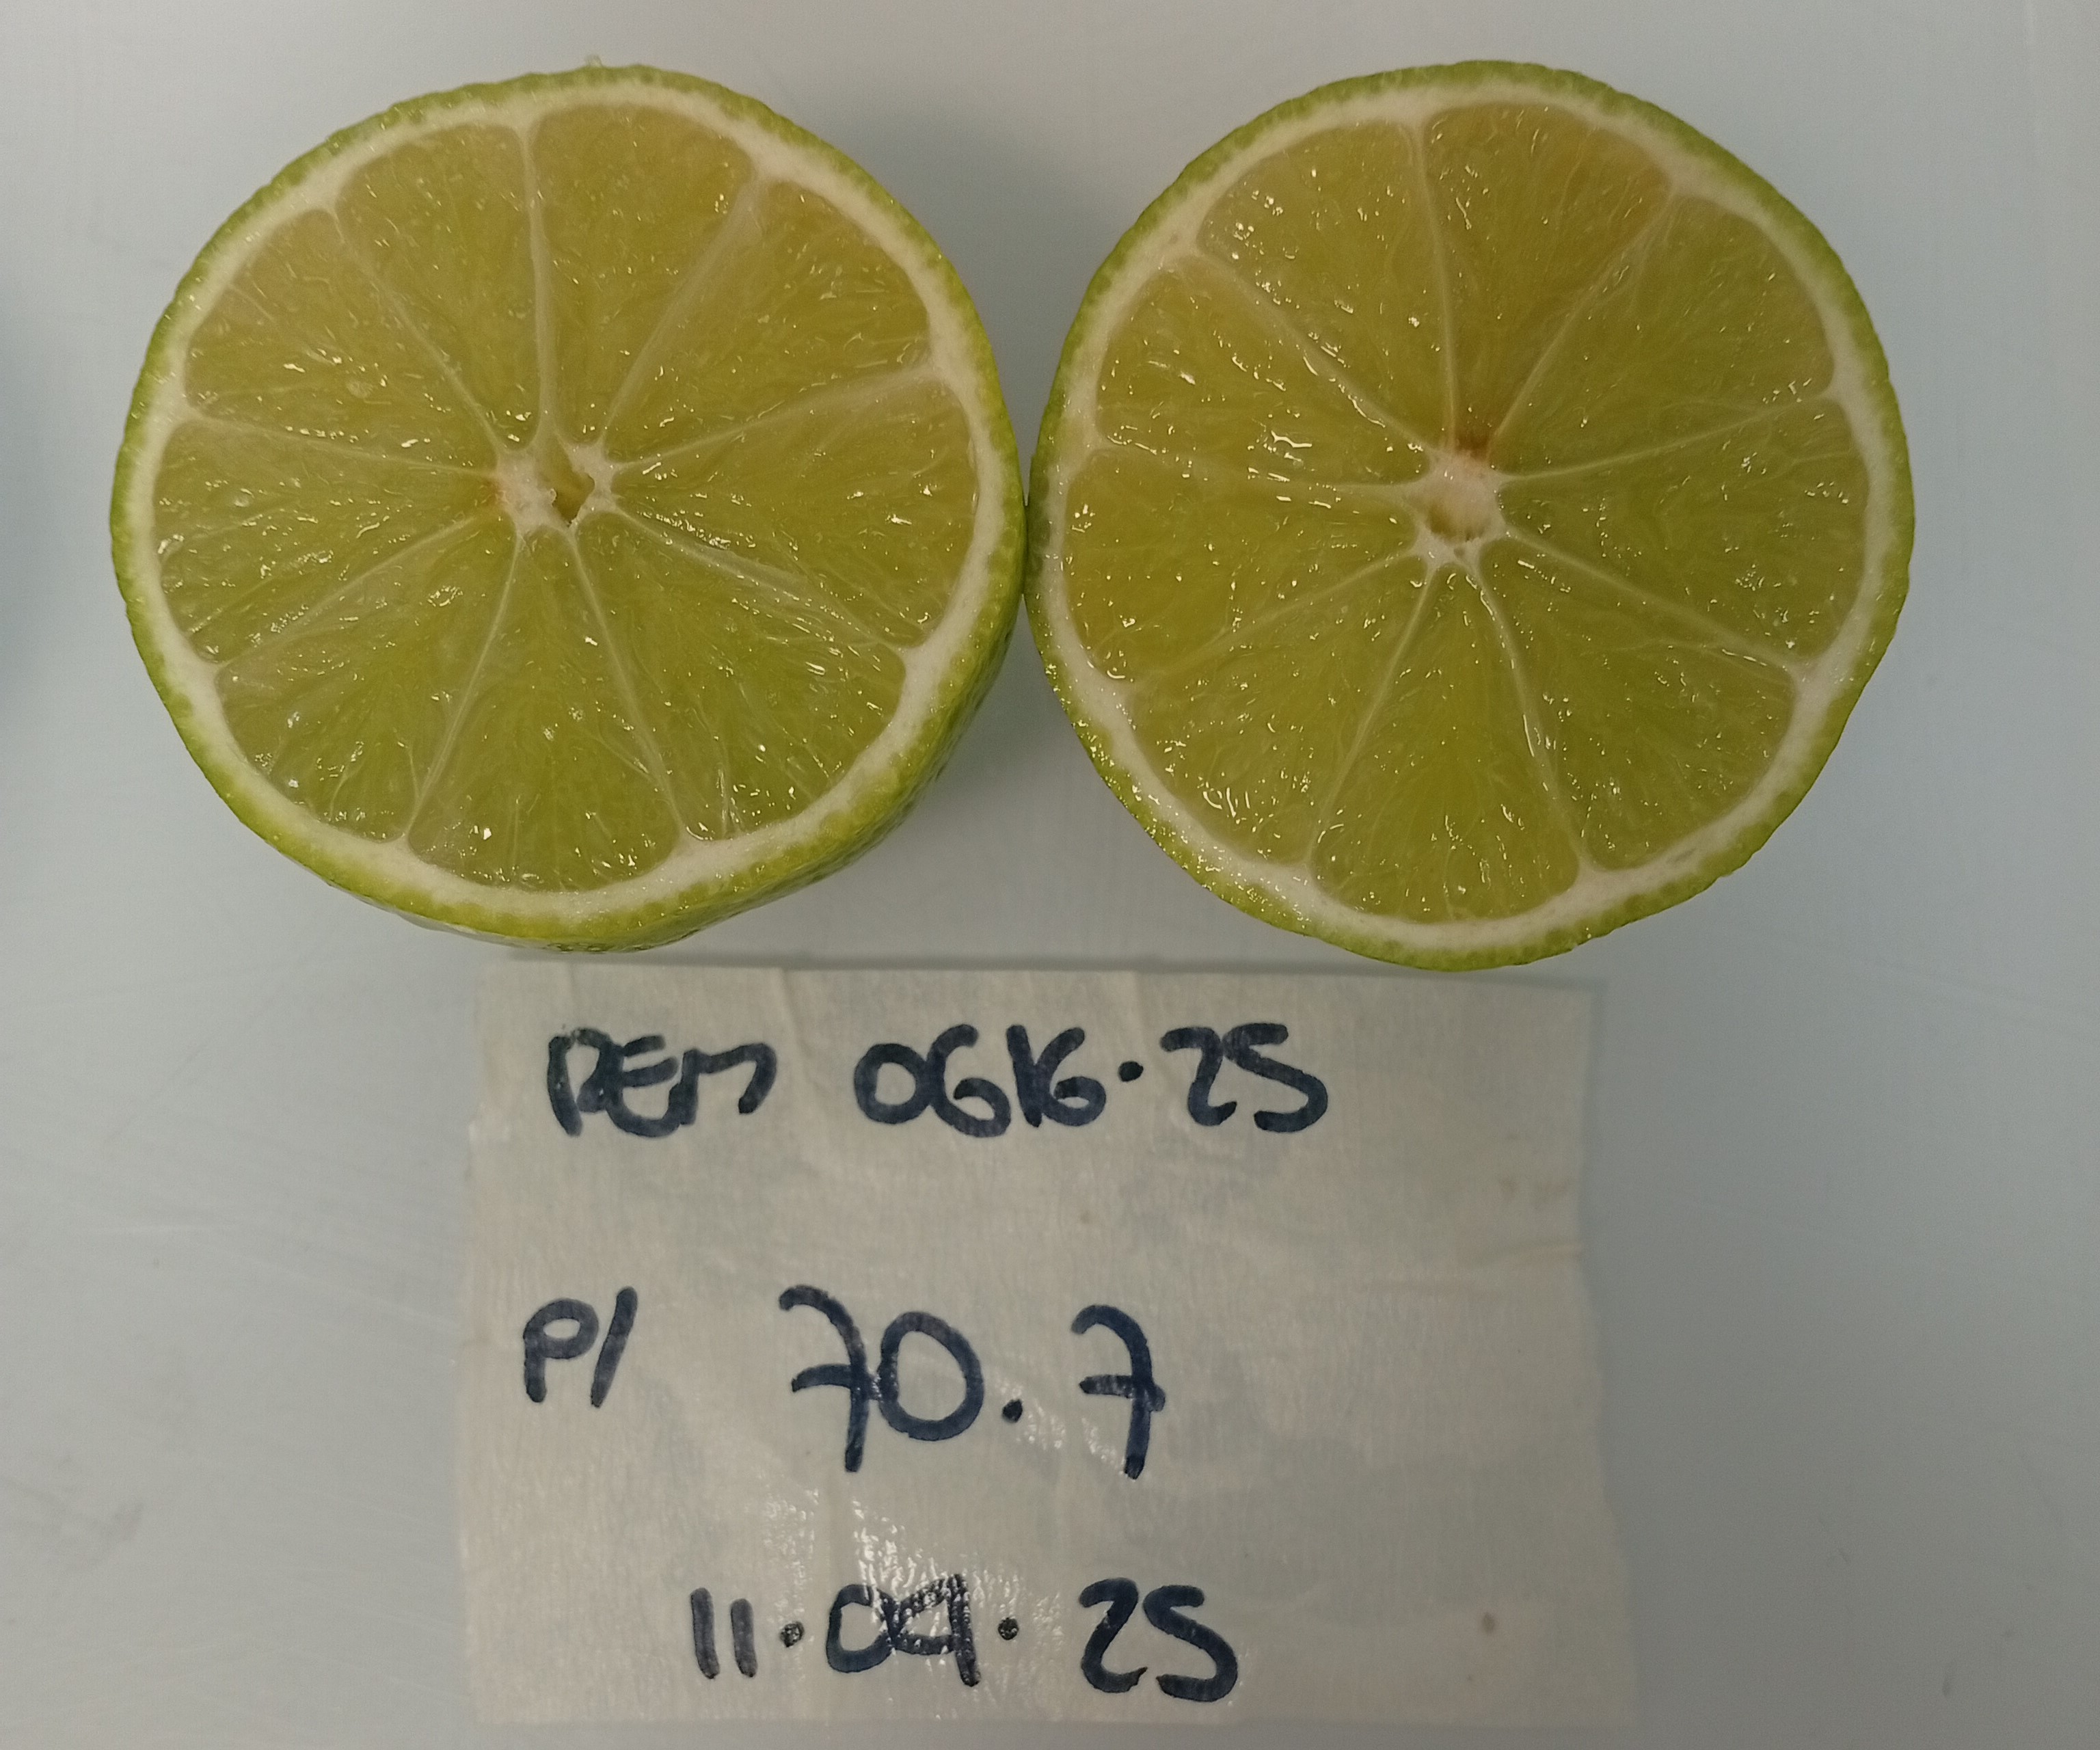 REM 0616.25
P/ 70.7
11.09.25